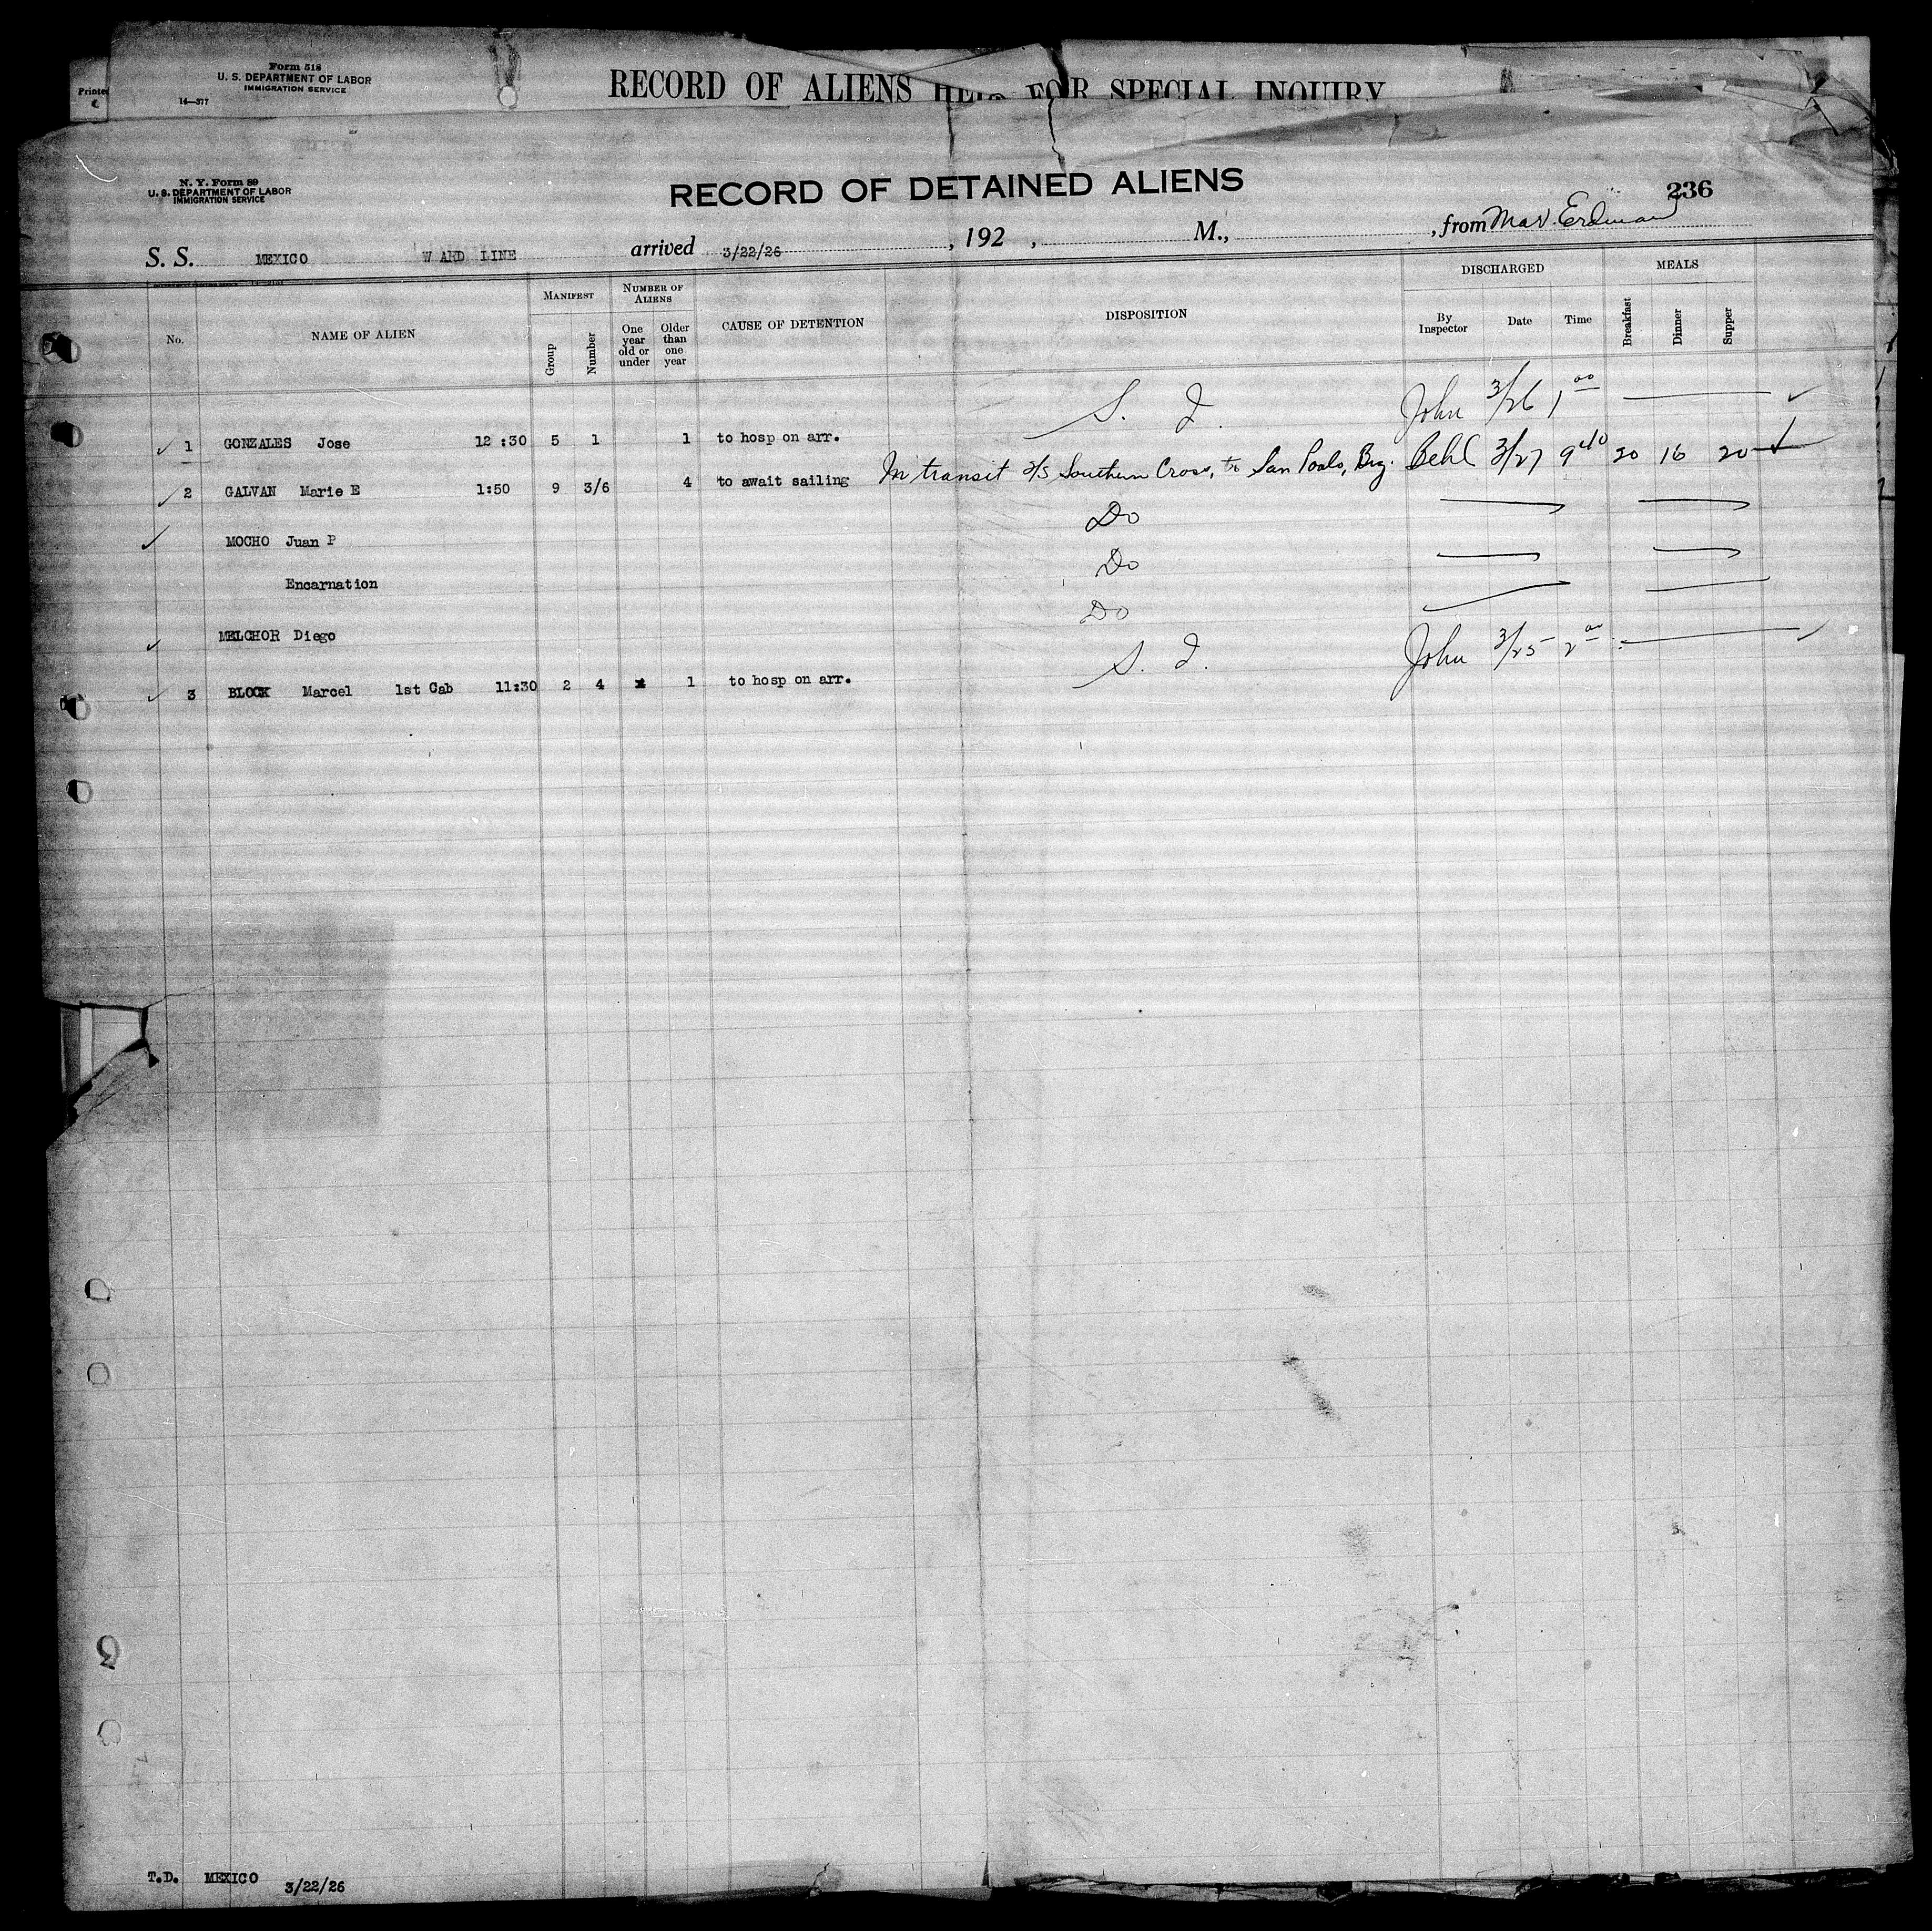 Printed
Form 518
U. S. DEPARTMENT OF LABOR
IMMIGRATION SERVICE
14—377
RECORD OF ALIENS HELD FOR SPECIAL INQUIRY
N. Y. Form 89
U. S. DEPARTMENT OF LABOR
IMMIGRATION SERVICE
RECORD OF DETAINED ALIENS
236
S. S. MEXICO WARD LINE arrived 3/22/26, 192 , M., , from Mar. Erdman
No. NAME OF ALIEN MANIFEST Group Number NUMBER OF ALIENS One year old or under Older than one year CAUSE OF DETENTION DISPOSITION DISCHARGED By Inspector Date Time MEALS Breakfast Dinner Supper
✓ 1 GONZALES Jose 12:30 5 1 1 to hosp on arr. S. I. John 3/26 1 00 ✓
✓ 2 GALVAN Marie E 1:50 9 3/6 4 to await sailing In transit S/S Southern Cross, to San Paolo, Brz. Behl 3/27 9 40 20 16 20
✓ MOCHO Juan P Do
Encarnation Do
✓ MELCHOR Diego Do
✓ 3 BLOCK Marcel 1st Cab 11:30 2 4 1 to hosp on arr. S. I. John 3/25 2 00 ✓
T.D. MEXICO 3/22/26